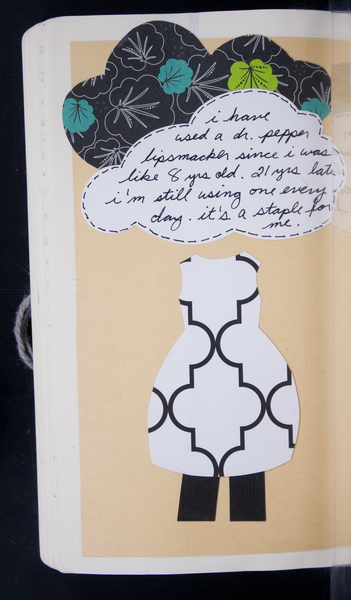 i have
used a dr. pepper
lipsmacker since i was
like 8 yrs old. 21 yrs late
i'm still using one every
day. it's a staple for
me.